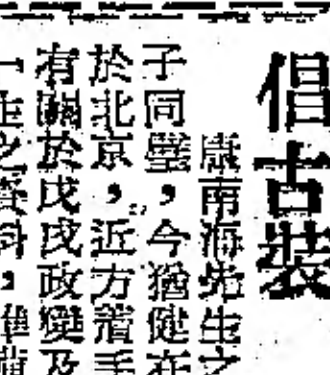 倡古裝
康南海先生之
子同璧，今猶健在
於北京，近方着手
有關於戊戌政變及
一生之資料，